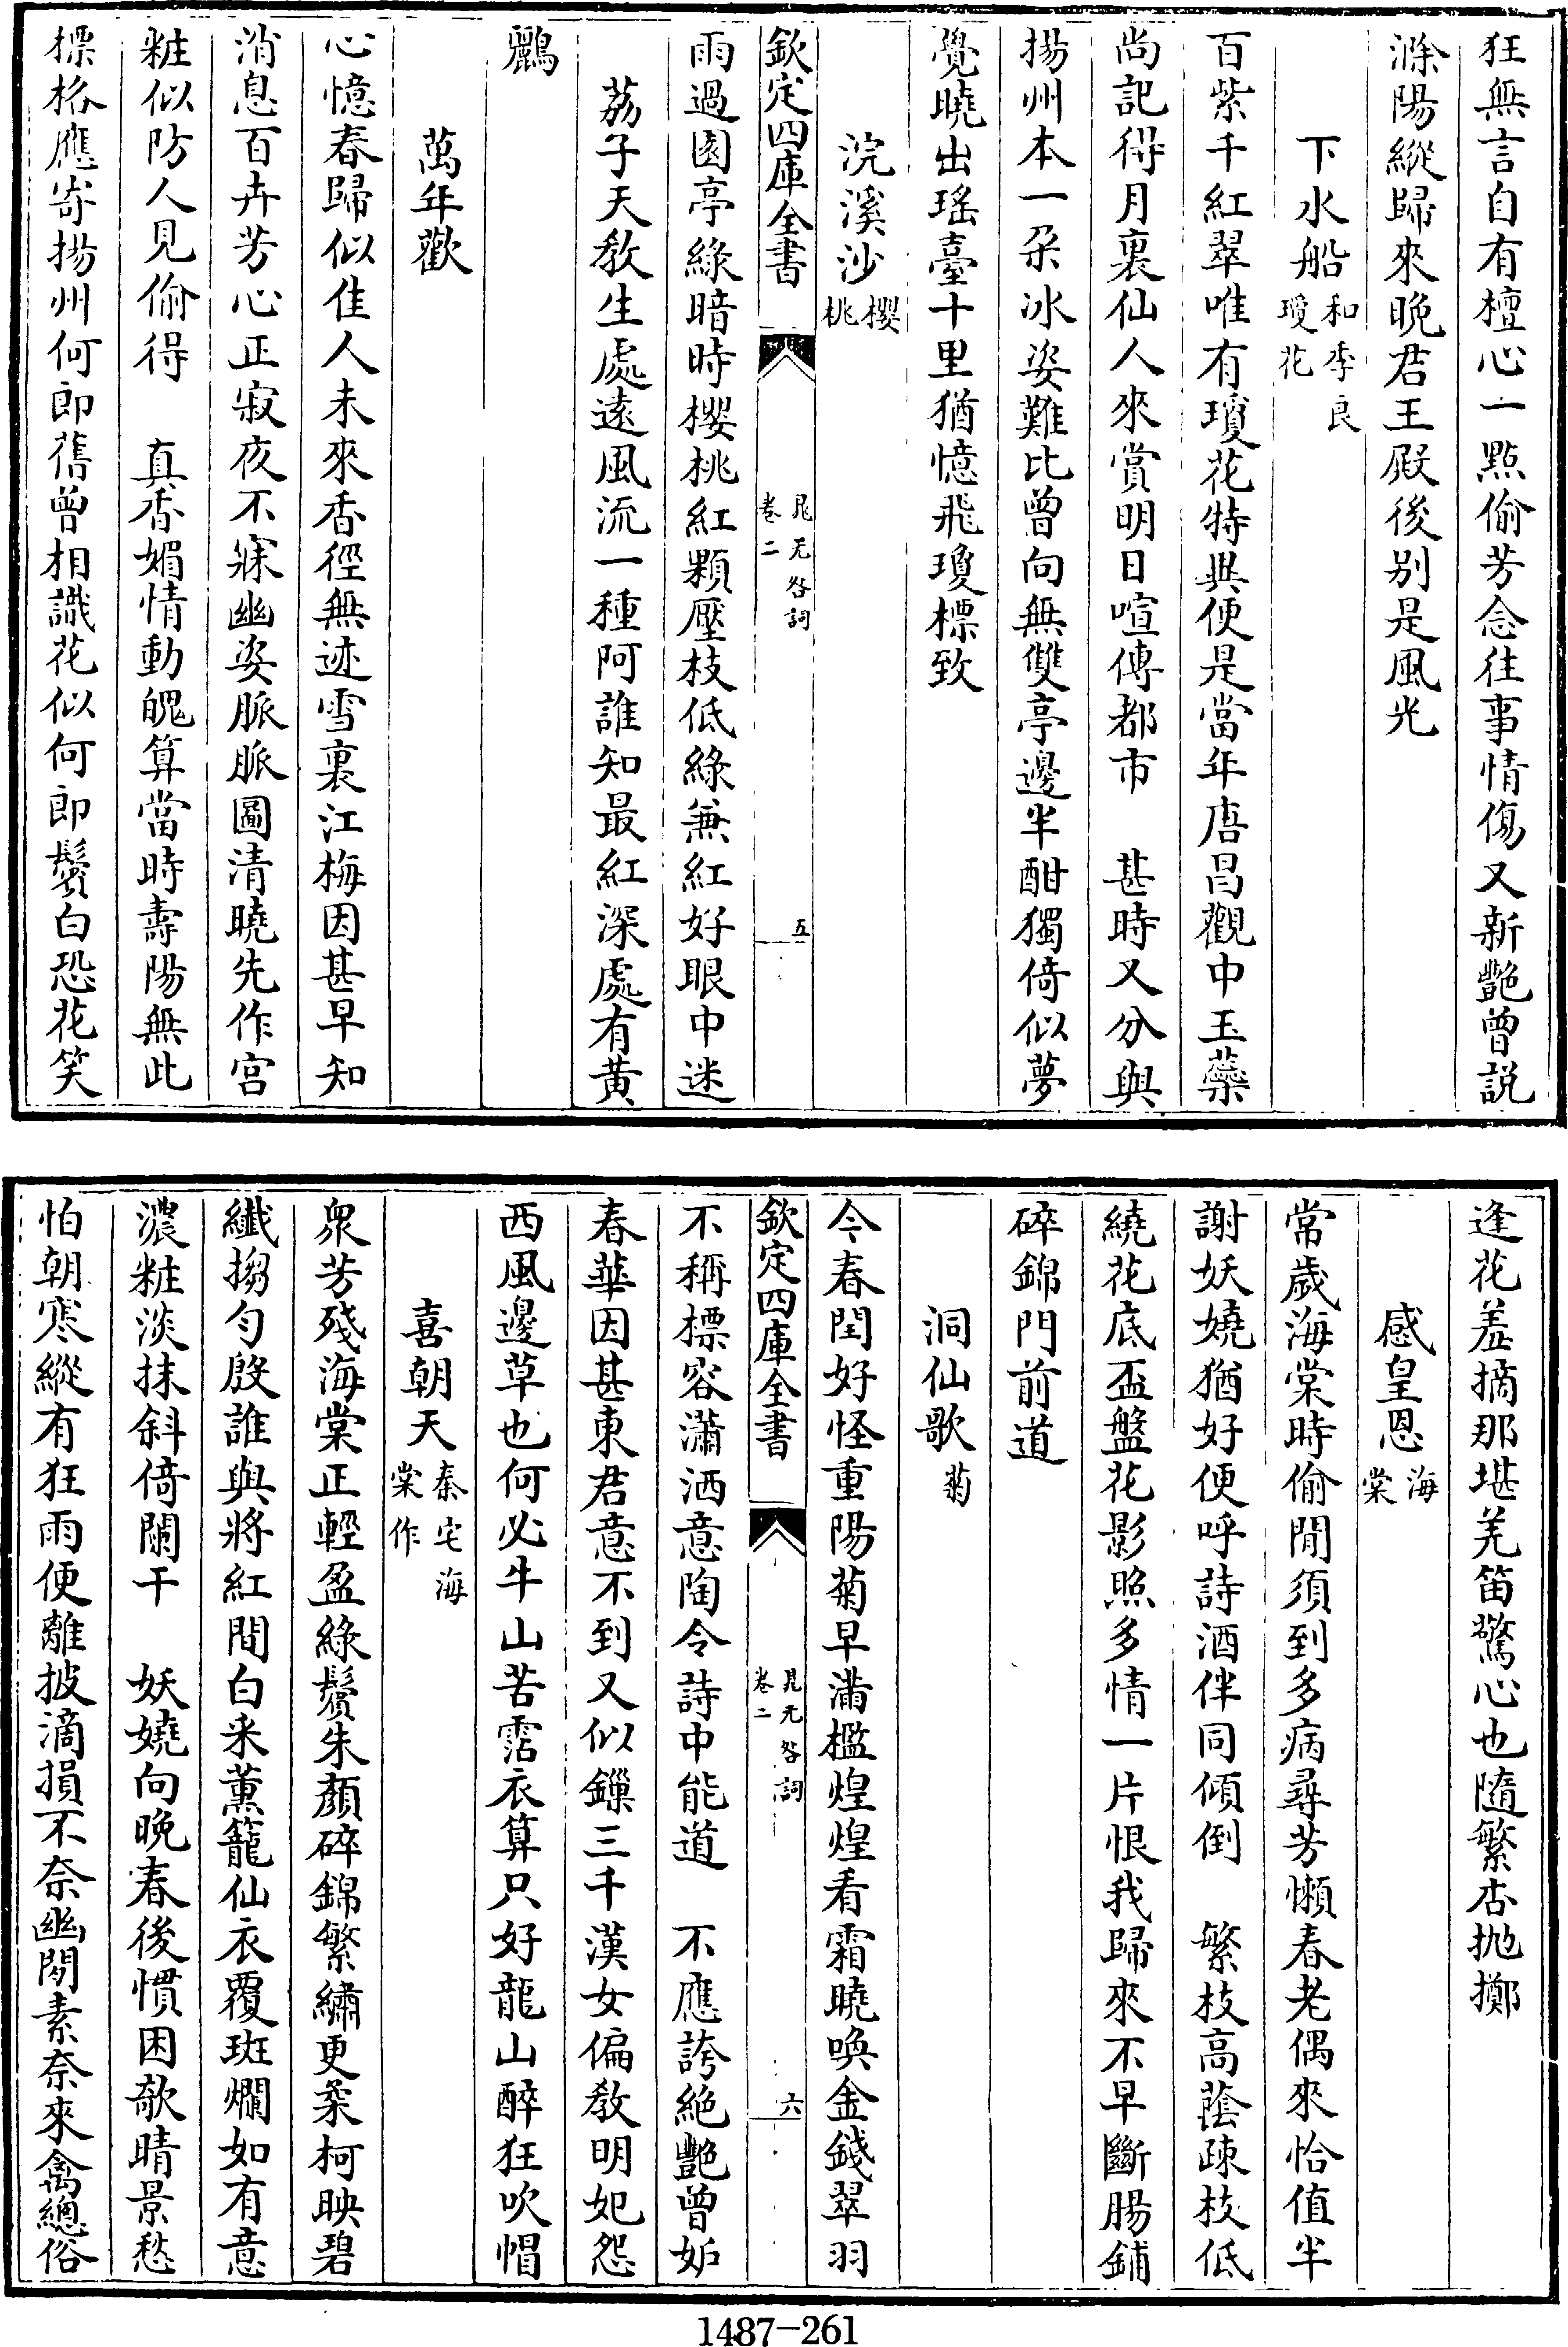 狂無言自有檀心一點偷芳念往事情傷又新艷曾説
滁陽縱歸來晚君王殿後别是風光
下水船和季良瓊花
百紫千紅翠唯有瓊花特異便是當年唐昌觀中玉蘂
尚記得月裏仙人來賞明日喧傳都市　甚時又分與
揚州本一朶冰姿難比曾向無雙亭邊半酣獨倚似夢
覺曉出瑶臺十里猶憶飛瓊標致
浣溪沙櫻桃
欽定四庫全書
晁无咎詞
卷二
五
雨過園亭綠暗時櫻桃紅顆壓枝低綠兼紅好眼中迷
荔子天教生處遠風流一種阿誰知最紅深處有黄
鸝
萬年歡
心憶春歸似佳人未來香徑無迹雪裏江梅因甚早知
消息百卉芳心正寂夜不寐幽姿脈脈圖清曉先作宫
粧似防人見偷得　真香媚情動魄算當時壽陽無此
標格應寄揚州何郎舊曾相識花似何郎鬢白恐花笑
逢花羞摘那堪羌笛驚心也隨繁杏抛擲
感皇恩海棠
常歲海棠時偷閒須到多病尋芳懶春老偶來恰值半
謝妖嬈猶好便呼詩酒伴同傾倒　繁枝高蔭疎枝低
繞花底盃盤花影照多情一片恨我歸來不早斷腸鋪
碎錦門前道
洞仙歌菊
今春閏好怪重陽菊早滿檻煌煌看霜曉喚金錢翠羽
欽定四庫全書
晁无咎詞
卷二
六
不稱標容瀟洒意陶令詩中能道　不應誇絶艷曾妒
春華因甚東君意不到又似鏁三千漢女偏教明妃怨
西風邊草也何必牛山苦霑衣算只好龍山醉狂吹帽
喜朝天秦宅海棠作
衆芳殘海棠正輕盈綠鬢朱顏碎錦繁繡更柔柯映碧
纖搊匀殷誰與將紅間白采薰籠仙衣覆斑爛如有意
濃粧淡抹斜倚闌干　妖嬈向晚春後慣困欹晴景愁
怕朝寒縱有狂雨便離披滴損不奈幽閒素奈來禽總俗
1487-261